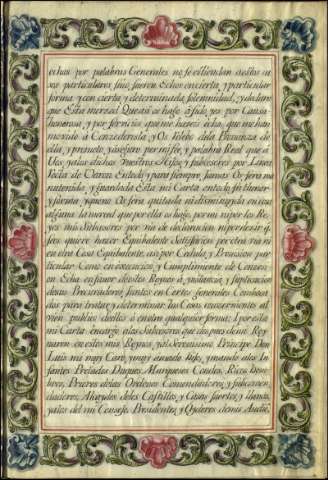 echas por palabras Generales no se estiendan a estas su
vos particulares sino fueren Echos en cierta, y particular
forma y con cierta y determinada solemnidad, y declaro
que Esta merced Que asi os hago a sido, y es por Causa
honerosa y por servicios que me haveis echo, que me han
movido à Concederosla, y Os relebo dela Provanza de
ella, y prometo, y aseguro por mi fee, y palabra Real que à
Vos, yalos dichos Vuestros Hijos, y subcesores por Linea
recta de Varon En todo, y para siempre Jamas Os sera ma
nutenida, y guardada Esta mi Carta en todo su thenor
y forma, y que no Os sera quitada ni disminuyda en cosa
alguna la merced que por ella os hago, por mi ni por los Re
yes mis Subcesores por via de declaracion ni por dezir q.
seos quiere hazer Equibalente Satisfacion por otra via ni
en otra Cosa Equibalente, asi por Cedula, y Provision par
ticular Como en execucion, y Cumplimiento de Conzesi
on Echa en favor destos Reynos à ynstancia, y suplicacion
delos Procuradores Juntos en Cortes generales Combocad
dos para tratar, y determinar las Cosas concernientes al
vien publico dellos ò en otra qualquier forma; I por esta
mi Carta encargo alos Subcesores que despues de mi Rey
naren en estos mis Reynos, yal Serenisimo Principe Don
Luis mi muy Caro, y muy amado Hijo, y mando alos In
fantes Prelados Duques Marqueses Condes, Ricos hom
bres, Priores delas Ordenes Comendadores, y subcomen
dadores, Alcaydes delos Castillos, y Casas fuertes, y llanas,
yalos del mi Consejo Presidentes, y Oydores demis Audie.